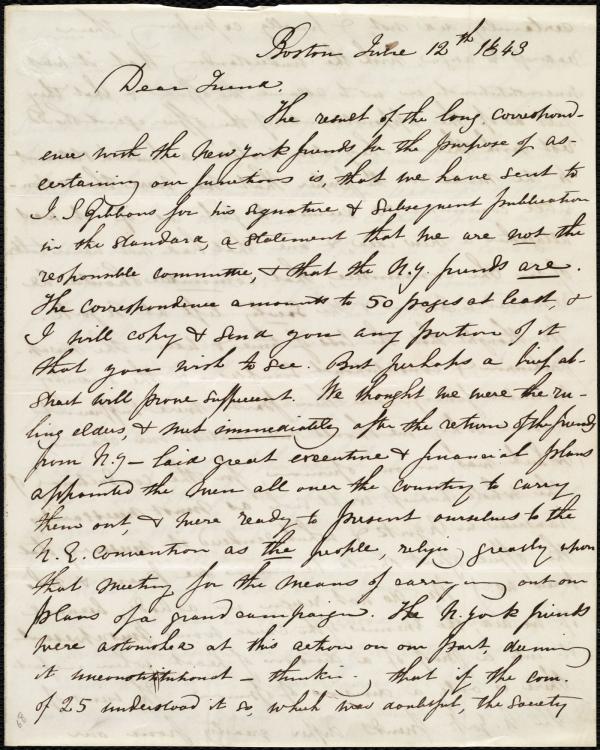 Boston June 12th 1843
Dear Friend.
The result of the long correspond-
ence with the New York friends for the purpose of as-
certaining our functions is, that we have sent to
J. S Gibbons for his signature & subsequent publication
in the Standard, a statement that we are not the
responsible committee, & that the N.Y. friends are.
The correspondence amounts to 50 pages at least, &
I will copy & send you any portion of it
that you wish to see. But perhaps a brief ab-
stract will prove sufficient. We thought we were the ru-
ling elders, & met immediately after the return of the friends
from N.Y - laid great executive & financial plans
appointed the men all over the country to carry
them out, & were ready to present ourselves to the
N.E. Convention as the people, relying greatly upon
that meeting for the means of carrying out our
plans of a grand campaign. The N. York friends
were astonished at this action on our part, deeming
it unconstitutional - thinking that if the com.
of 25 understood it so, which was doubtful, the Society
68